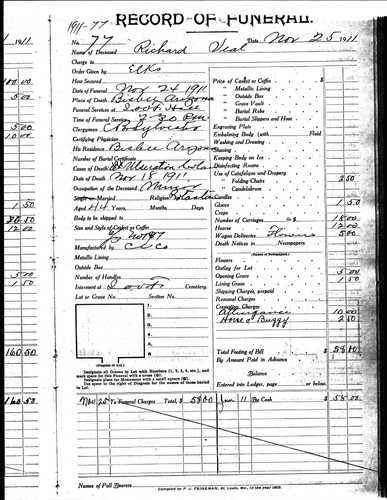 1911-77
RECORD OF FUNERAL.
No. 77
Date Nov 25 1911
Name of Deceased Richard
Charge to
Order Given by Elks
How Secured
Date of Funeral Nov 24 1911
Place of Death Bisbee Arizona
Funeral Services at
Time of Funeral Services 2-30 P.M.
Clergyman
Certifying Physician
His Residence Bisbee Arizona
Number of Burial Certificate
Cause of Death
Date of Death Nov 18 1911
Occupation of the Deceased
Single or Married Religion
Aged 44 Years, Months, Days.
Body to be shipped to
Size and Style of Casket or Coffin
Manufactured by
Metallic Lining
Outside Box
Number of Handles
Interment at Cemetery.
Lot or Grave No. Section No.
1.
2.
3.
4.
5.
6.
(Diagram of Lot.)
Designate all Graves in Lot with Numbers (1, 2, 3, 4, etc.), and
mark space for this Funeral with a cross
Designate place for Monument with a small square
Use space to the right of Diagram for names of those buried
in Lot.
Price of Casket or Coffin $
" Metallic Lining
" Outside Box
" Grave Vault
" Burial Robe
" Burial Slippers and Hose
Engraving Plate
Embalming Body (with Fluid
Washing and Dressing
Shaving
Keeping Body on Ice
Disinfecting Rooms
Use of Catafalque and Drapery
" Folding Chairs 2 50
" Candelabrum
Candles
Gloves 1 50
Crape
Number of Carriages @$ 18 00
Hearse 12 00
Wagon Deliveries Flowers 5 00
Death Notices in Newspapers.
(Names of Newspapers.)
Flowers
Outlay for Lot
Opening Grave 5 00
Lining Grave 1 50
Shipping Charges, prepaid
Removal Charges
Cremation Charges
Attendance 10 00
Horse & Buggy 2 50
Total Footing of Bill 58 00
By Amount Paid in Advance
Balance
Entered into Ledger, page or below.
Nov 25 To Funeral Charges Total, $ 58 00 Jan 11 By Cash $ 58 00
Names of Pall Bearers
Compiled by F. J. FEINEMAN, St. Louis, Mo., in the year 1902.